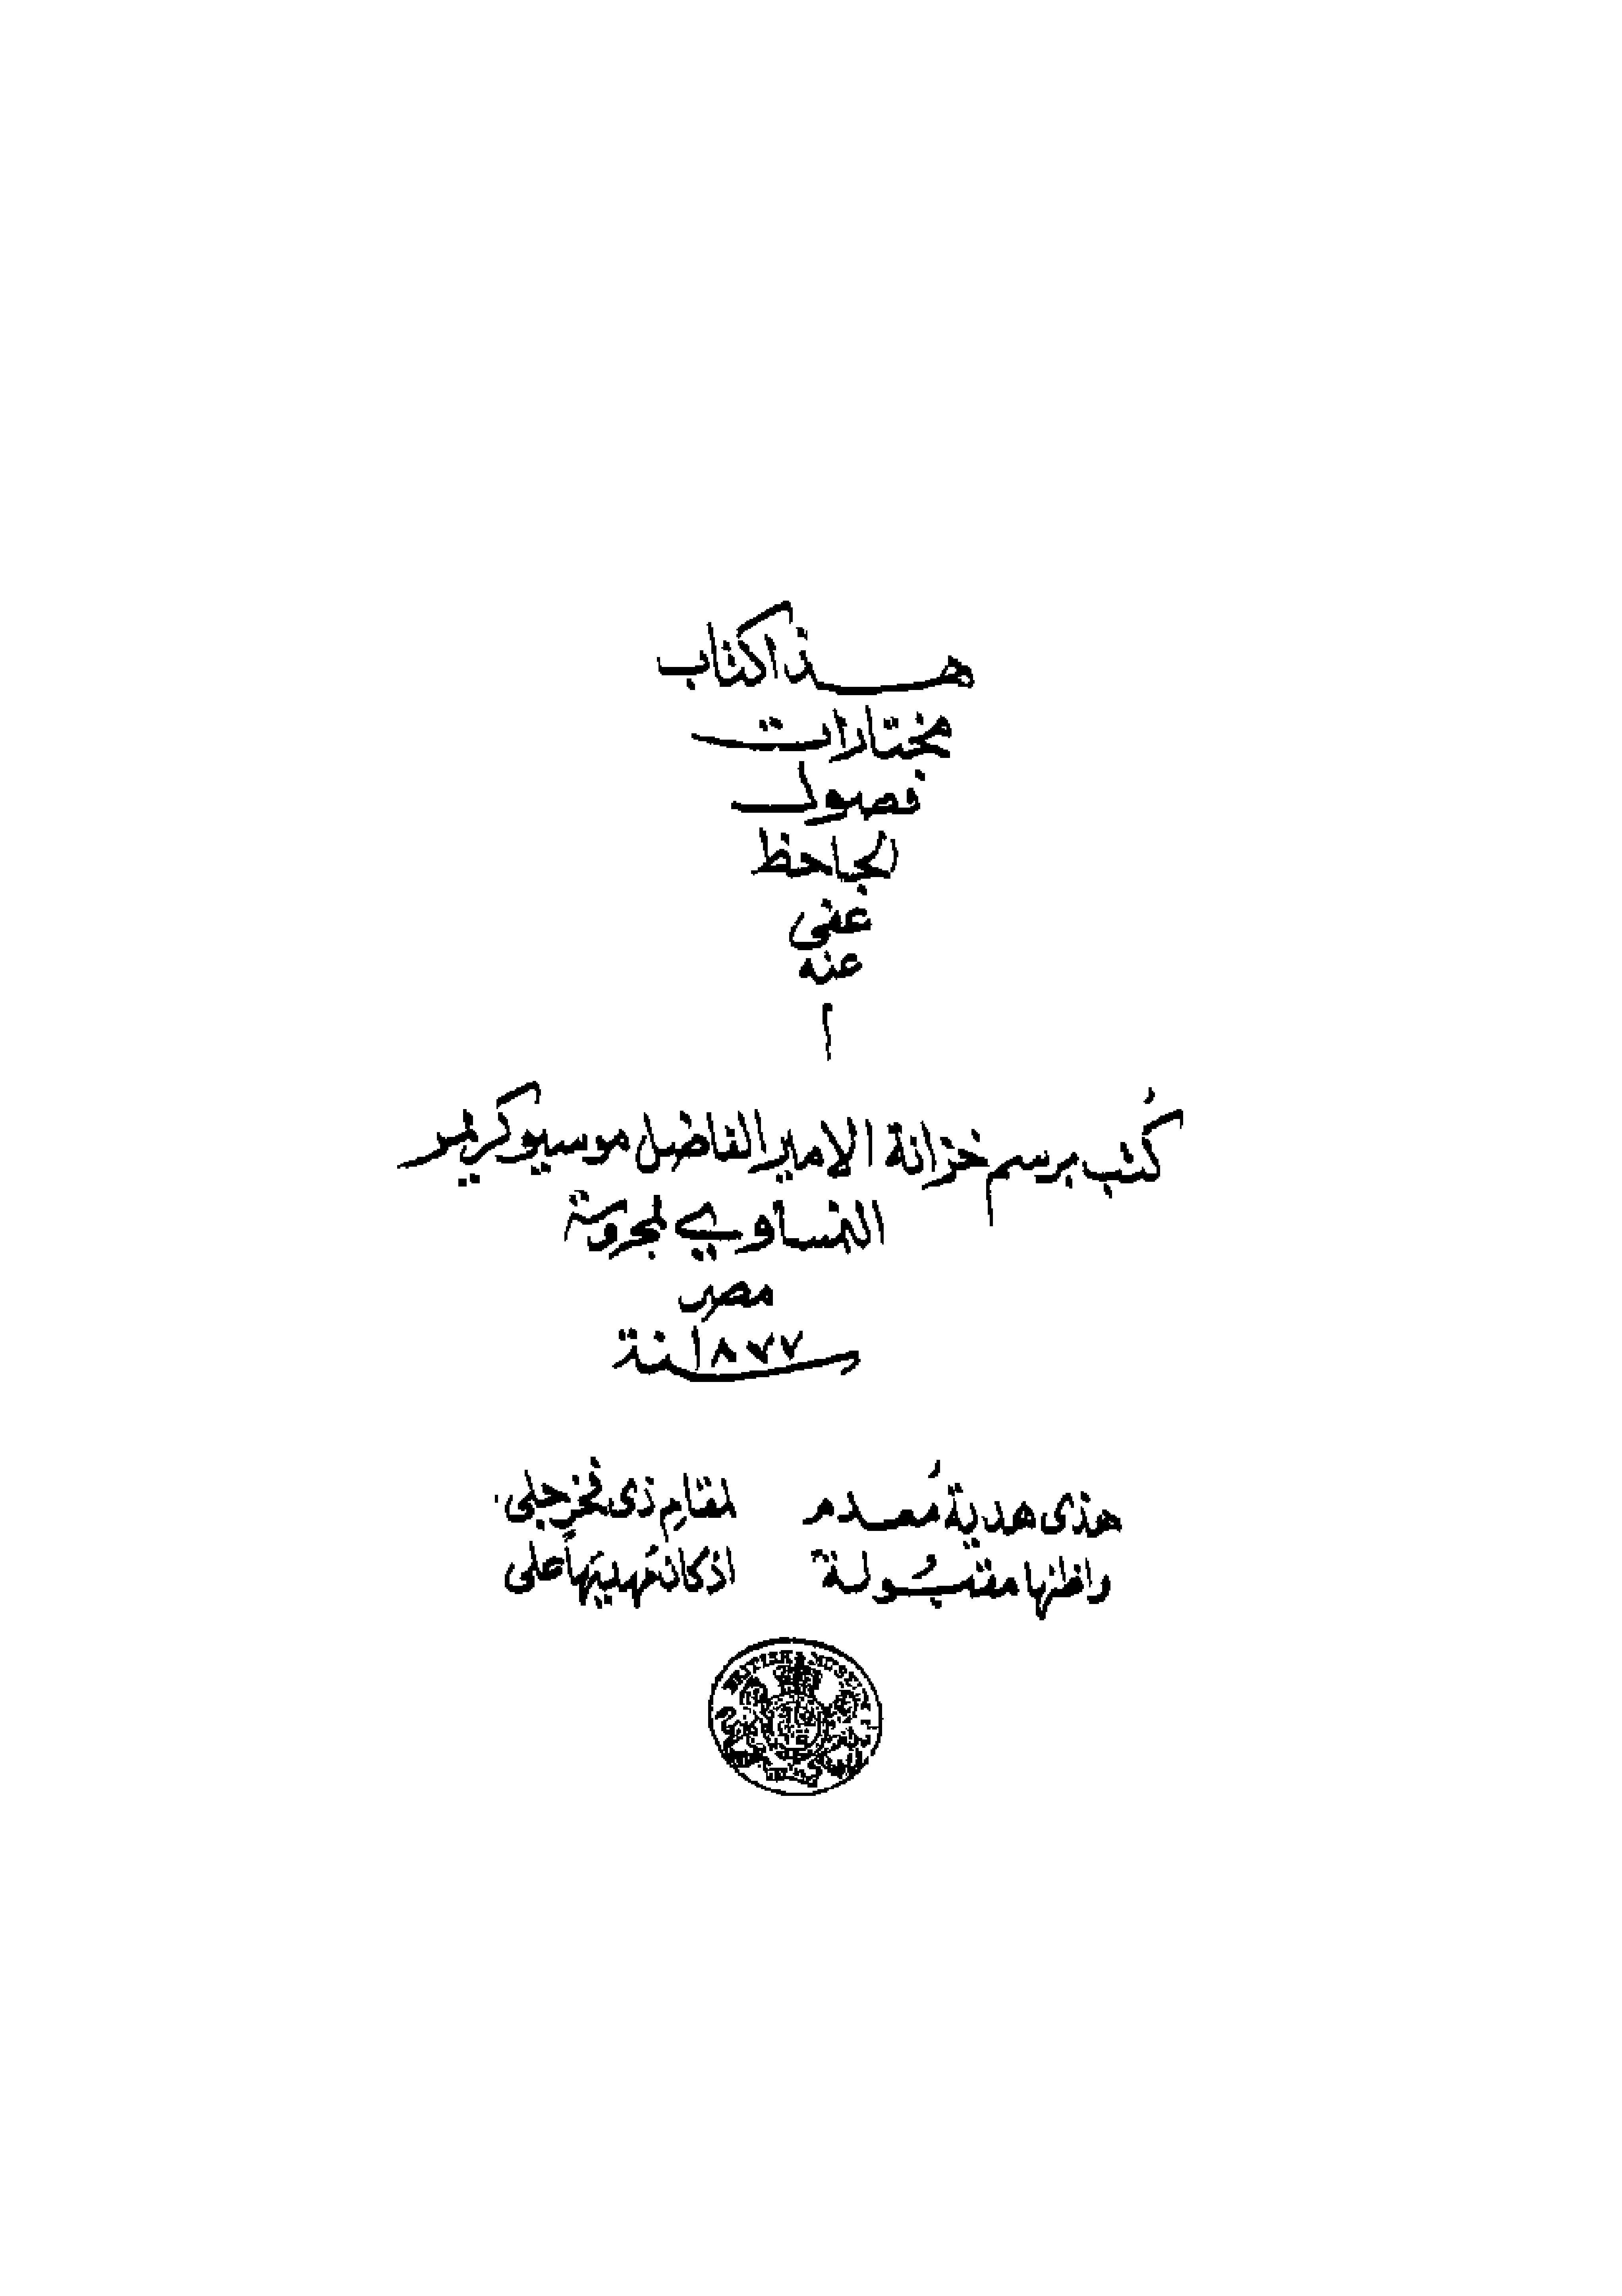 هذا كتاب
مختارات
فصول
الجاحظ
عفى
عنه
كُتب برسم خزانة الامير الفاضل موسيو كريمر
النمساوي بمحروسة
مصر
سنة ١٨٧٧
هذى هدية مُعدم لمقامِ ذى فخرٍ جلى
واظنها مقبُولة اذ كان مُهديَها على
BRITISH MUSEUM